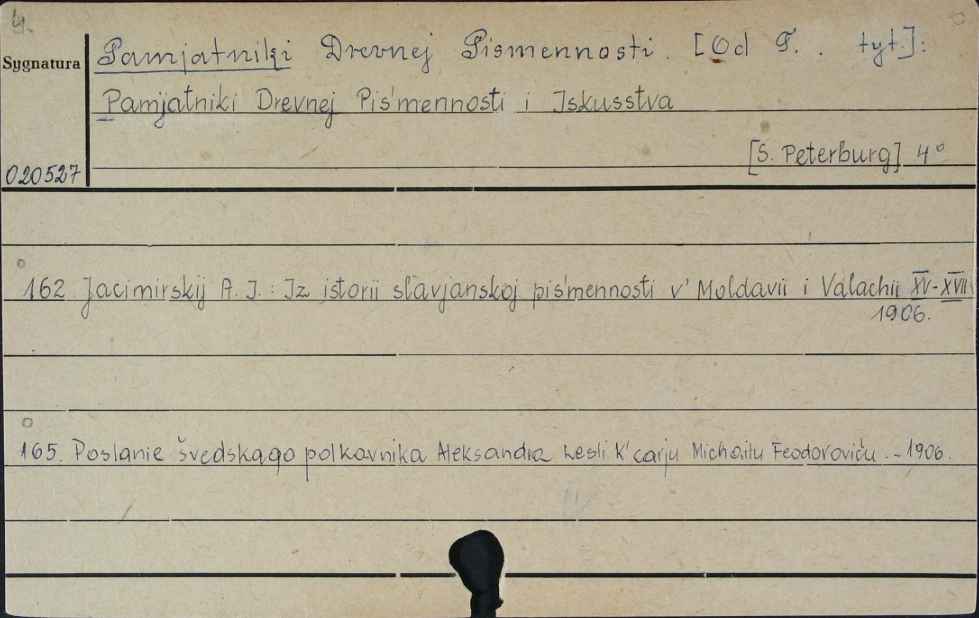 4.
Sygnatura
Pamjatniki Drevnej Pismennosti. [Od T. . tyt.]:
Pamjatniki Drevnej Piśmennosti i Iskusstva
[S. Peterburg] 4°
020527
162. Jacimirskij A. J.: Iz istorii slavjanskoj piśmennosti v' Moldavii i Valachii XV-XVII
1906.
165. Poslanie švedskago polkovnika Aleksandra Lesli k' carju Michailu Feodoroviču. - 1906.